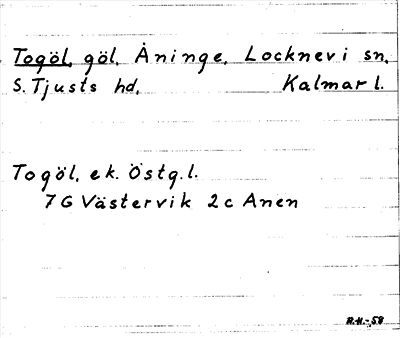 Togöl, göl, Åninge, Locknevi sn,
S. Tjusts hd, Kalmar l.
Togöl, ek. Östg. l.
7 G Västervik 2 c Anen